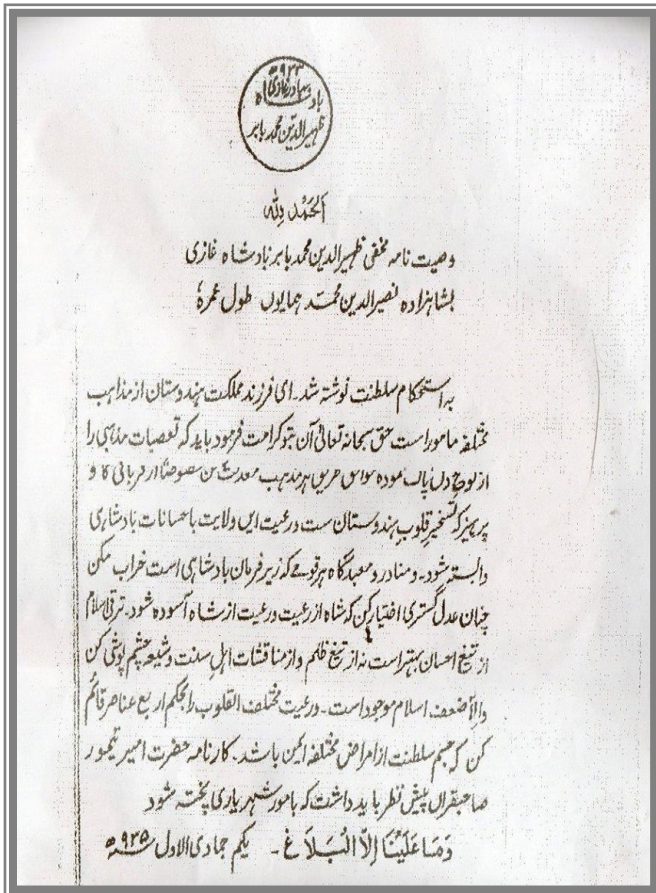 ۹۳۳
بادشاہ بہادر غازی
ظہیر الدین محمد بابر
اَلحَمْدُ لِلّٰہ
وصیت نامہ مخفی ظہیر الدین محمد بابر بادشاہ غازی
بشاہزادہ نصیر الدین محمد ہمایوں طول عمرہٗ
بہ استحکام سلطنت نوشتہ شد۔ ای فرزند مملکت ہندوستان از مذاہب
مختلفہ مامور است حق سبحانہ تعالیٰ آن بتو کرامت فرمود باید کہ تعصبات مذہبی را
از لوح دل پاک نمودہ طریق ہر مذہب معدلت کن خصوصاً از قربانی گاو
پرہیز کہ تسخیر قلوب ہندوستان ست و رعیت ایں ولایت باحسانات بادشاہی
وابستہ شود۔ و منادر و معبدگاہ ہر قومے کہ زیر فرمان بادشاہی است خراب مکن
چناں عدل گستری اختیار کن کہ شاہ از رعیت و رعیت از شاہ آسودہ شود۔ ترقی اسلام
از تیغ احسان بہتر است نہ از تیغ ظلم و از مناقشات اہل سنت و شیعہ چشم پوشی کن
والّا ضعف اسلام موجود است۔ و رعیت مختلف القلوب را بحکم اربع عناصر قائم
کن کہ جسم سلطنت از امراض مختلفہ ایمن باشد۔ کارنامہ حضرت امیر تیمور
صاحبقراں پیش نظر باید داشت کہ بامور شہریاری پختہ شود
وَمَا عَلَیْنَا اِلَّا الْبَلَاغ ۔ یکم جمادی الاول ۹۳۵ھ